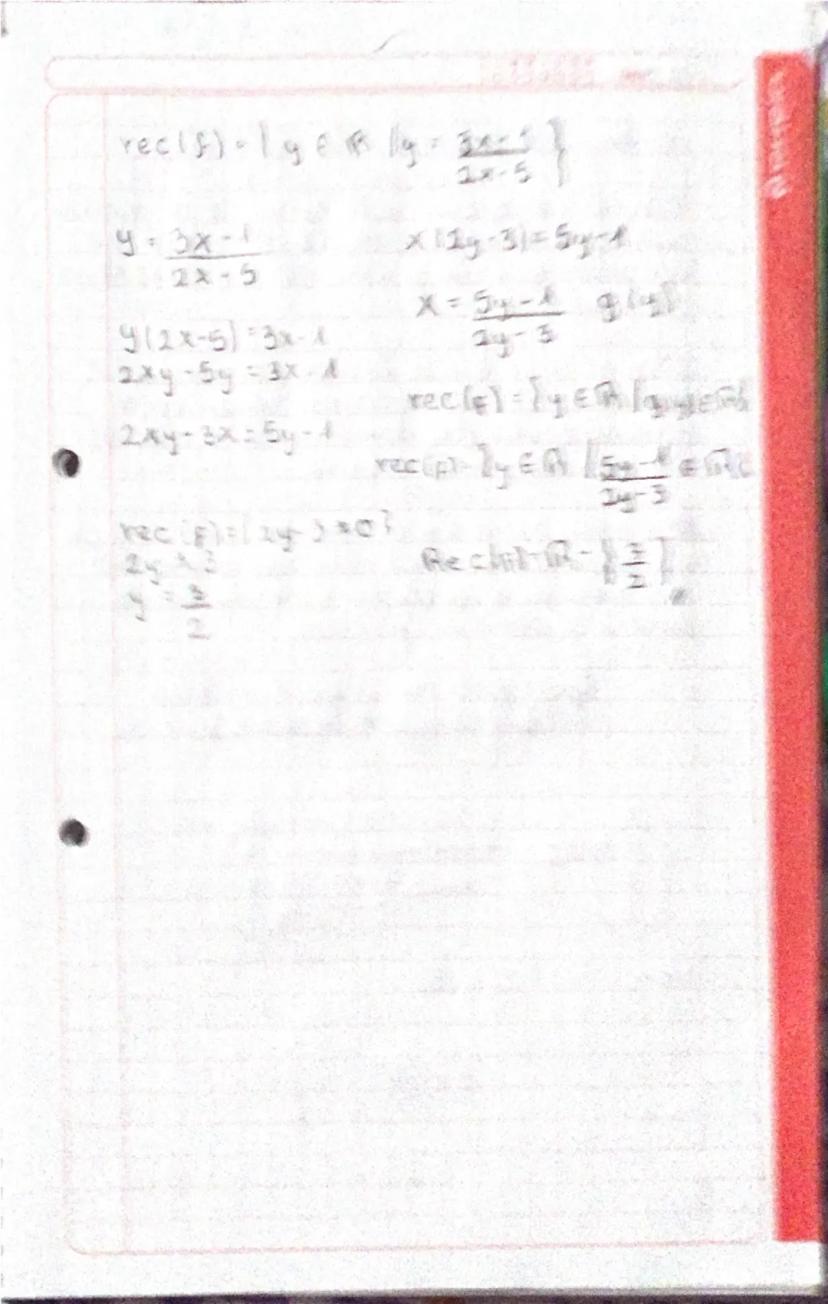 rec(f) = { y ∈ ℝ / y = (3x-1)/(2x-5) }
y = (3x-1)/(2x-5)
y(2x-5) = 3x-1
2xy-5y = 3x-1
2xy-3x = 5y-1
x(2y-3) = 5y-1
x = (5y-1)/(2y-3) g(y)
rec(f) = { y ∈ ℝ / g(y) ∈ ℝ }
rec(f) = { y ∈ ℝ / (5y-1)/(2y-3) ∈ ℝ }
rec(f) = { 2y-3 ≠ 0 }
2y ≠ 3
y = 3/2
Rec(f) = ℝ - { 3/2 }